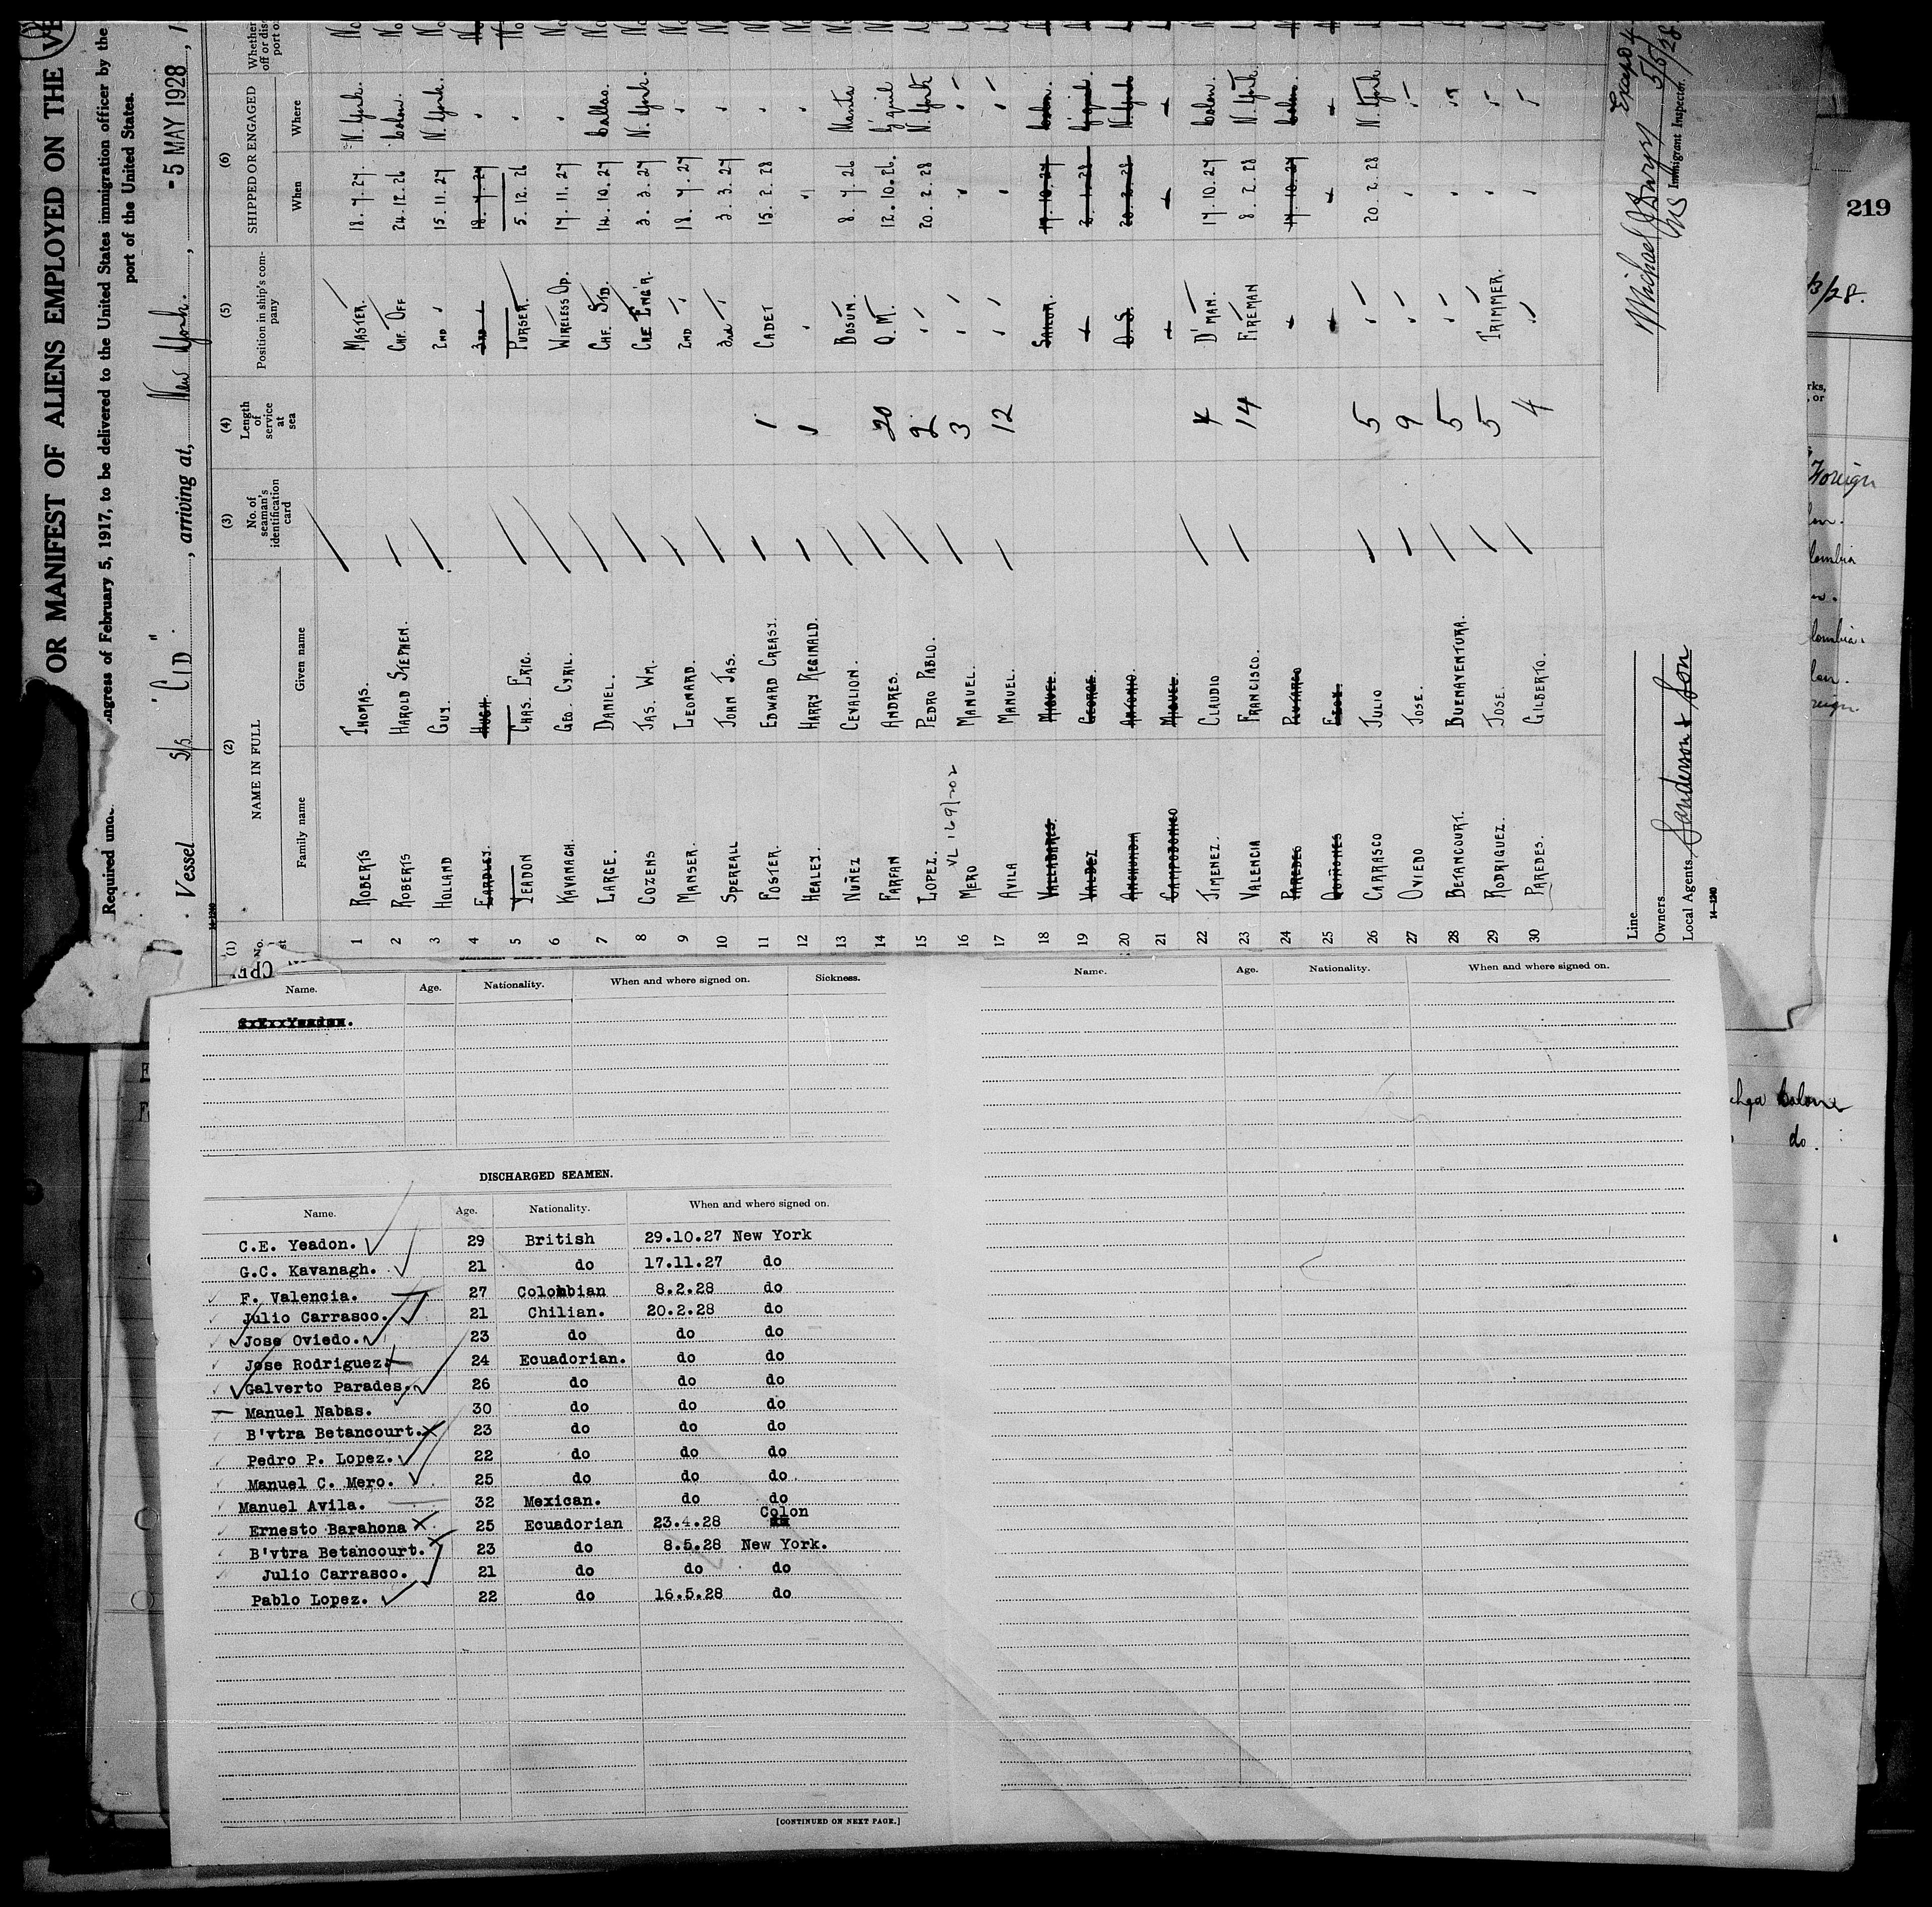 OR MANIFEST OF ALIENS EMPLOYED ON THE
ngress of February 5, 1917, to be delivered to the United States immigration officer by the
Required und
port of the United States.
Vessel S/S "CID". , arriving at, New York. , -5 MAY 1928 , 1
(1) (2) (3) (4) (5) (6)
NAME IN FULL
No. of seaman's identification card
Length of service at sea
Position in ship's company
SHIPPED OR ENGAGED
Family name Given name When Where
1 ROBERTS THOMAS. MASTER 18.7.27. N. York.
2 ROBERTS HAROLD STEPHEN. CHF. OFF 24.12.26 Colon.
3 HOLLAND GUY. 2ND " 15.11.27 N. York.
4 EARDLEY. HUGH. 3RD " 18.7.27 "
5 YEADON CHAS. ERIC. PURSER. 5.12.26 "
6 KAVANAGH. GEO. CYRIL. WIRELESS OP. 17.11.27 "
7 LARGE. DANIEL. CHF. STD. 14.10.27 Callao.
8 COZENS JAS. WM. CHF ENG'R. 3.3.27 N. York.
9 MANSER. LEONARD. 2ND " 18.7.27 "
10 SPEREALL JOHN JAS. 3RD " 3.3.27 "
11 FOSTER. EDWARD CREASY. 1 CADET 15.2.28 "
12 HEALEY. HARRY REGINALD. 1 " " "
13 NUÑEZ CEVALION. BOSUN. 8.7.26 Manta
14 FARFAN ANDRES. 20 Q.M. 12.10.26. G'quil
15 LOPEZ. PEDRO PABLO. 2 " 20.2.28 N. York
VL 1691702
16 MERO MANUEL. 3 " " "
17 AVILA MANUEL. 12 " " "
18 VALLADARES. MIGUEL. SAILOR. 17.10.27 Colon.
19 VALDEZ GEORGE. " 2.1.28 G'quil.
20 ANCHUNDIA ANTONIO. O.S. 20.2.28 N. York
21 CAMPODONICO MIGUEL. " " "
22 JIMENEZ. CLAUDIO 4 D'MAN. 17.10.27 Colon.
23 VALENCIA FRANCISCO. 14 FIREMAN 8.2.28 N. York
24 PAREDES PLUTARCO " 17.10.27 Colon.
25 QUIÑONES " " "
26 CARRASCO JULIO 5 " 20.2.28 N. York
27 OVIEDO JOSE. 9 " " "
28 BETANCOURT. BUENAVENTURA. 5 " " "
29 RODRIGUEZ. JOSE. 5 TRIMMER. " "
30 PAREDES. GILBERTO. 4 " " "
Line
Owners
Local Agents Sanderson & Son
14—1240
Immigrant Inspector.
5/5/28
219
3/28.
Foreign
lombia
lombia.
reign.
do.
Name. Age. Nationality. When and where signed on. Sickness.
DISCHARGED SEAMEN.
Name. Age. Nationality. When and where signed on.
C.E. Yeadon. 29 British 29.10.27 New York
G.C. Kavanagh. 21 do 17.11.27 do
F. Valencia. 27 Colombian 8.2.28 do
Julio Carrasco. 21 Chilian. 20.2.28 do
Jose Oviedo. 23 do do do
Jose Rodriguez. 24 Ecuadorian. do do
Galverto Parades. 26 do do do
Manuel Nabas. 30 do do do
B'vtra Betancourt. 23 do do do
Pedro P. Lopez. 22 do do do
Manuel C. Mero. 25 do do do.
Manuel Avila. 32 Mexican. do do
Ernesto Barahona 25 Ecuadorian 23.4.28 Colon
B'vtra Betancourt. 23 do 8.5.28 New York.
Julio Carrasco. 21 do do do
Pablo Lopez. 22 do 16.5.28 do
[CONTINUED ON NEXT PAGE.]
Name. Age. Nationality. When and where signed on.